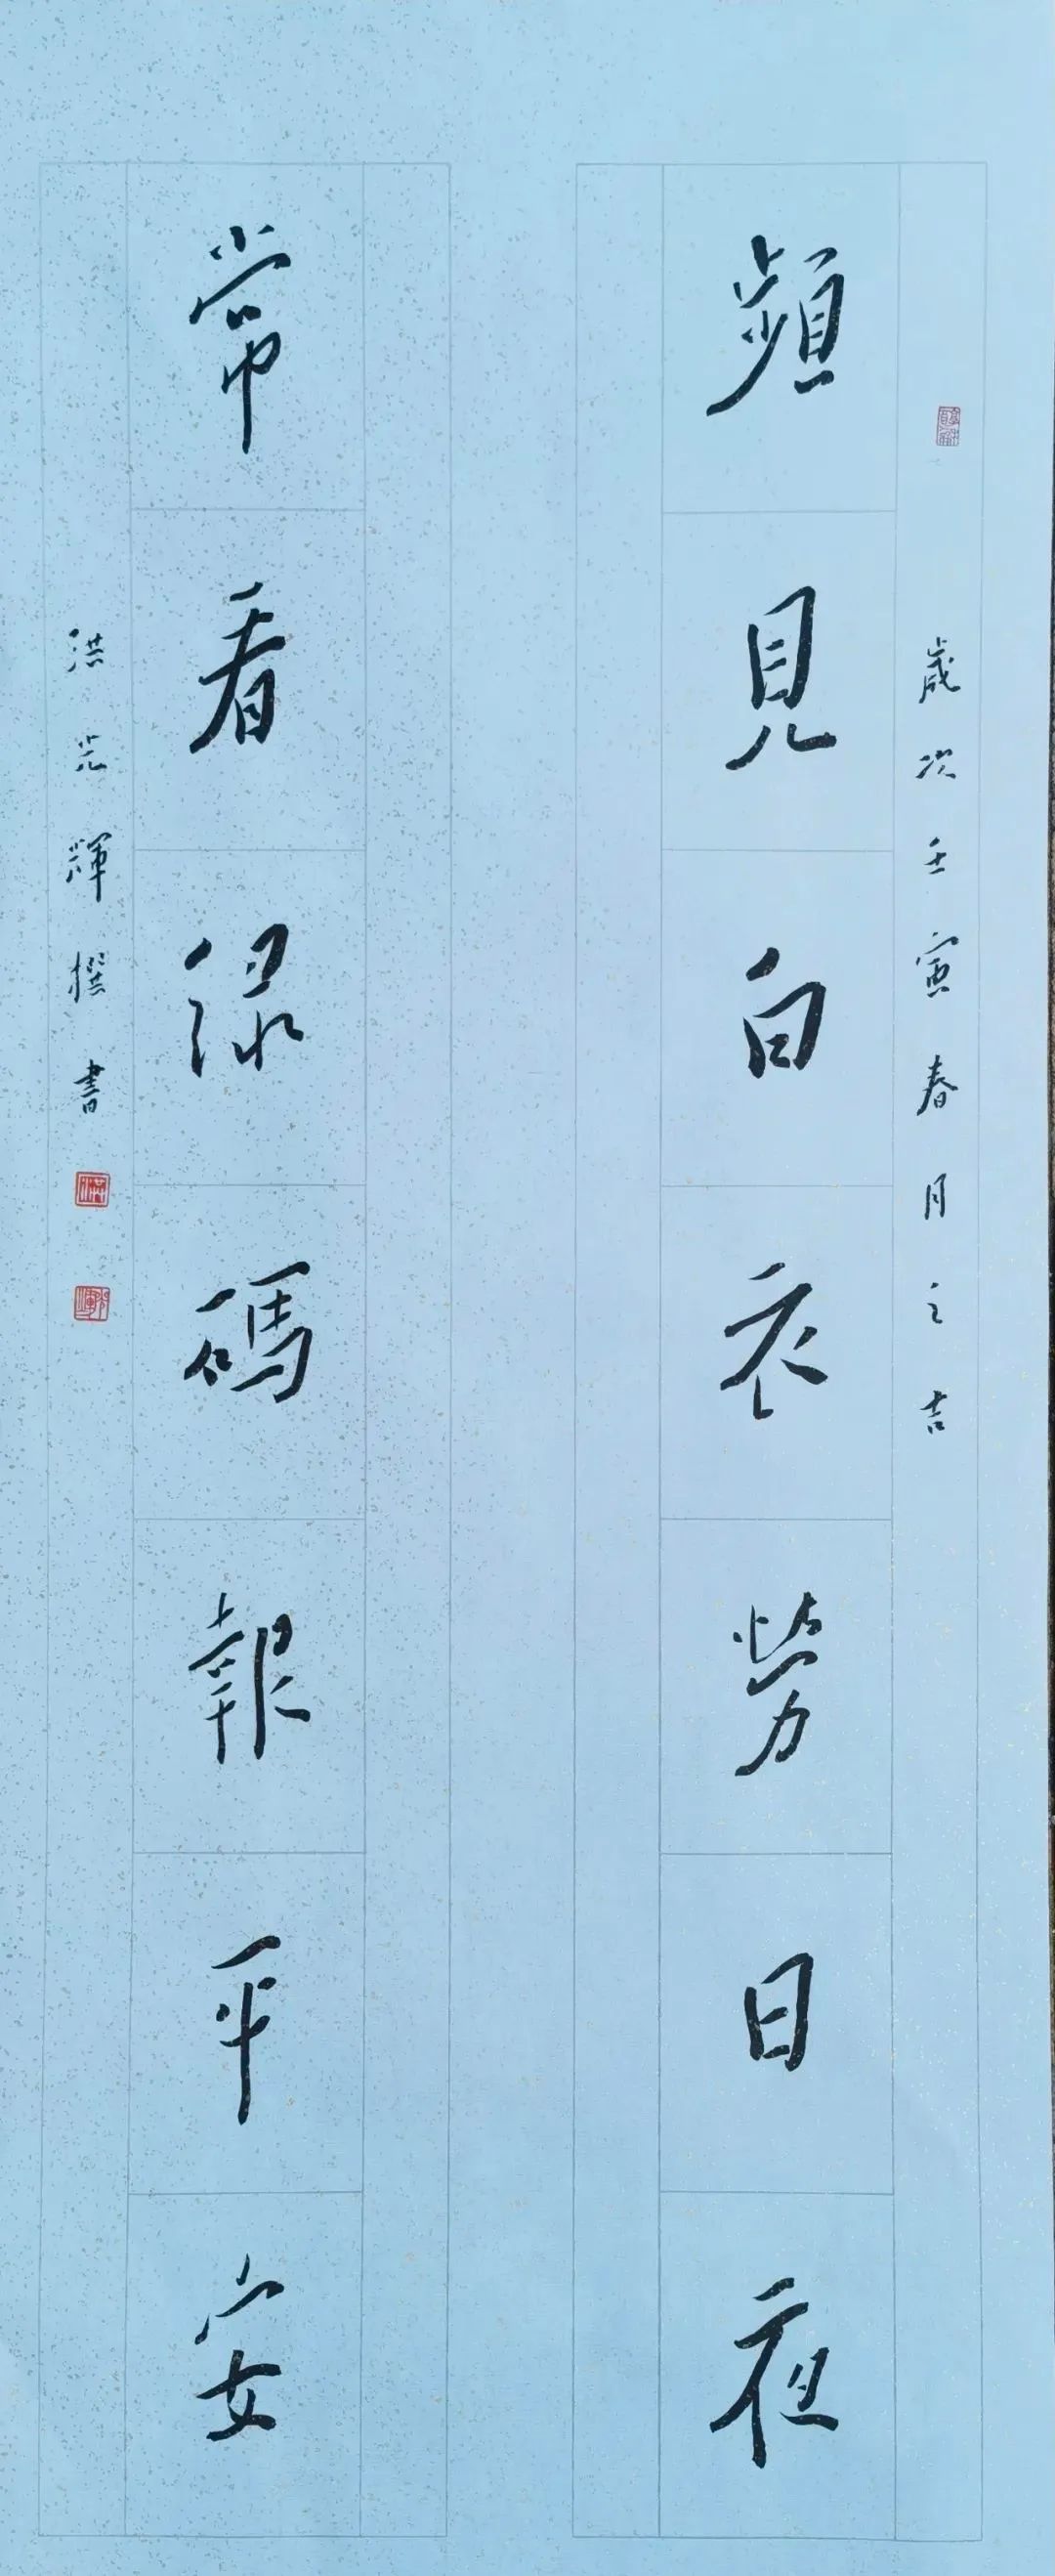 歲次壬寅春月之吉
頻見白衣勞日夜
常看緑碼報平安
洪光輝撰書